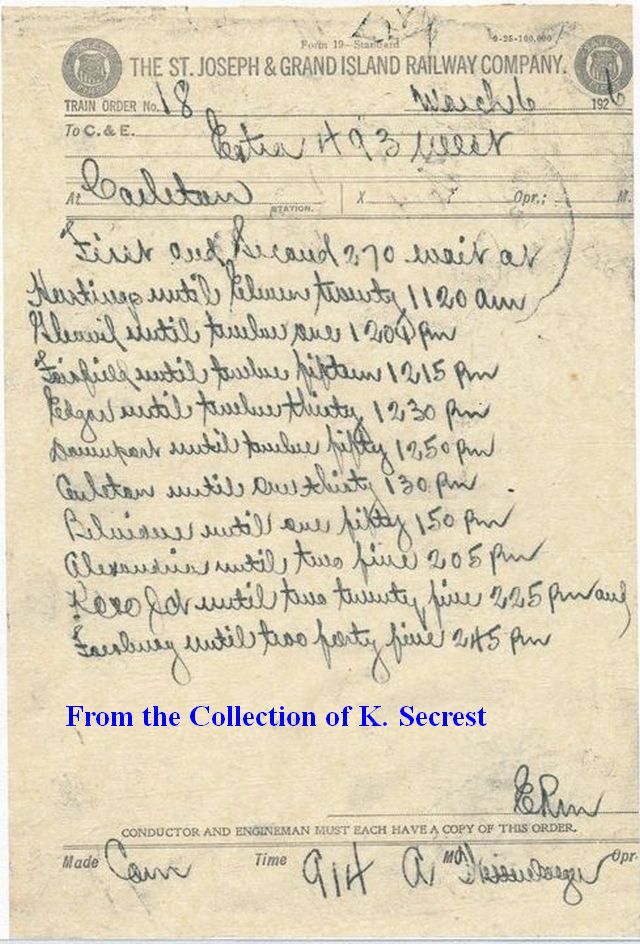 Form 19—Standard 9-25-100,000
THE ST. JOSEPH & GRAND ISLAND RAILWAY COMPANY.
TRAIN ORDER No. 18 March 6 1926
To C. & E. Extra 493 West
At Carleton STATION. X Opr.; M.
First and Second 270 wait at
Hastings until Eleven twenty 1120 am
until twelve one 1201 pm
Fairfield until twelve fifteen 1215 pm
Edgar until twelve thirty 1230 pm
Davenport until twelve fifty 1250 pm
Carleton until one thirty 130 pm
Belvidere until one fifty 150 pm
Alexandria until two five 205 pm
until two twenty five 225 pm and
Fairbury until two forty five 245 pm
From the Collection of K. Secrest
ERM
CONDUCTOR AND ENGINEMAN MUST EACH HAVE A COPY OF THIS ORDER.
Made Com Time 914 A M. Opr